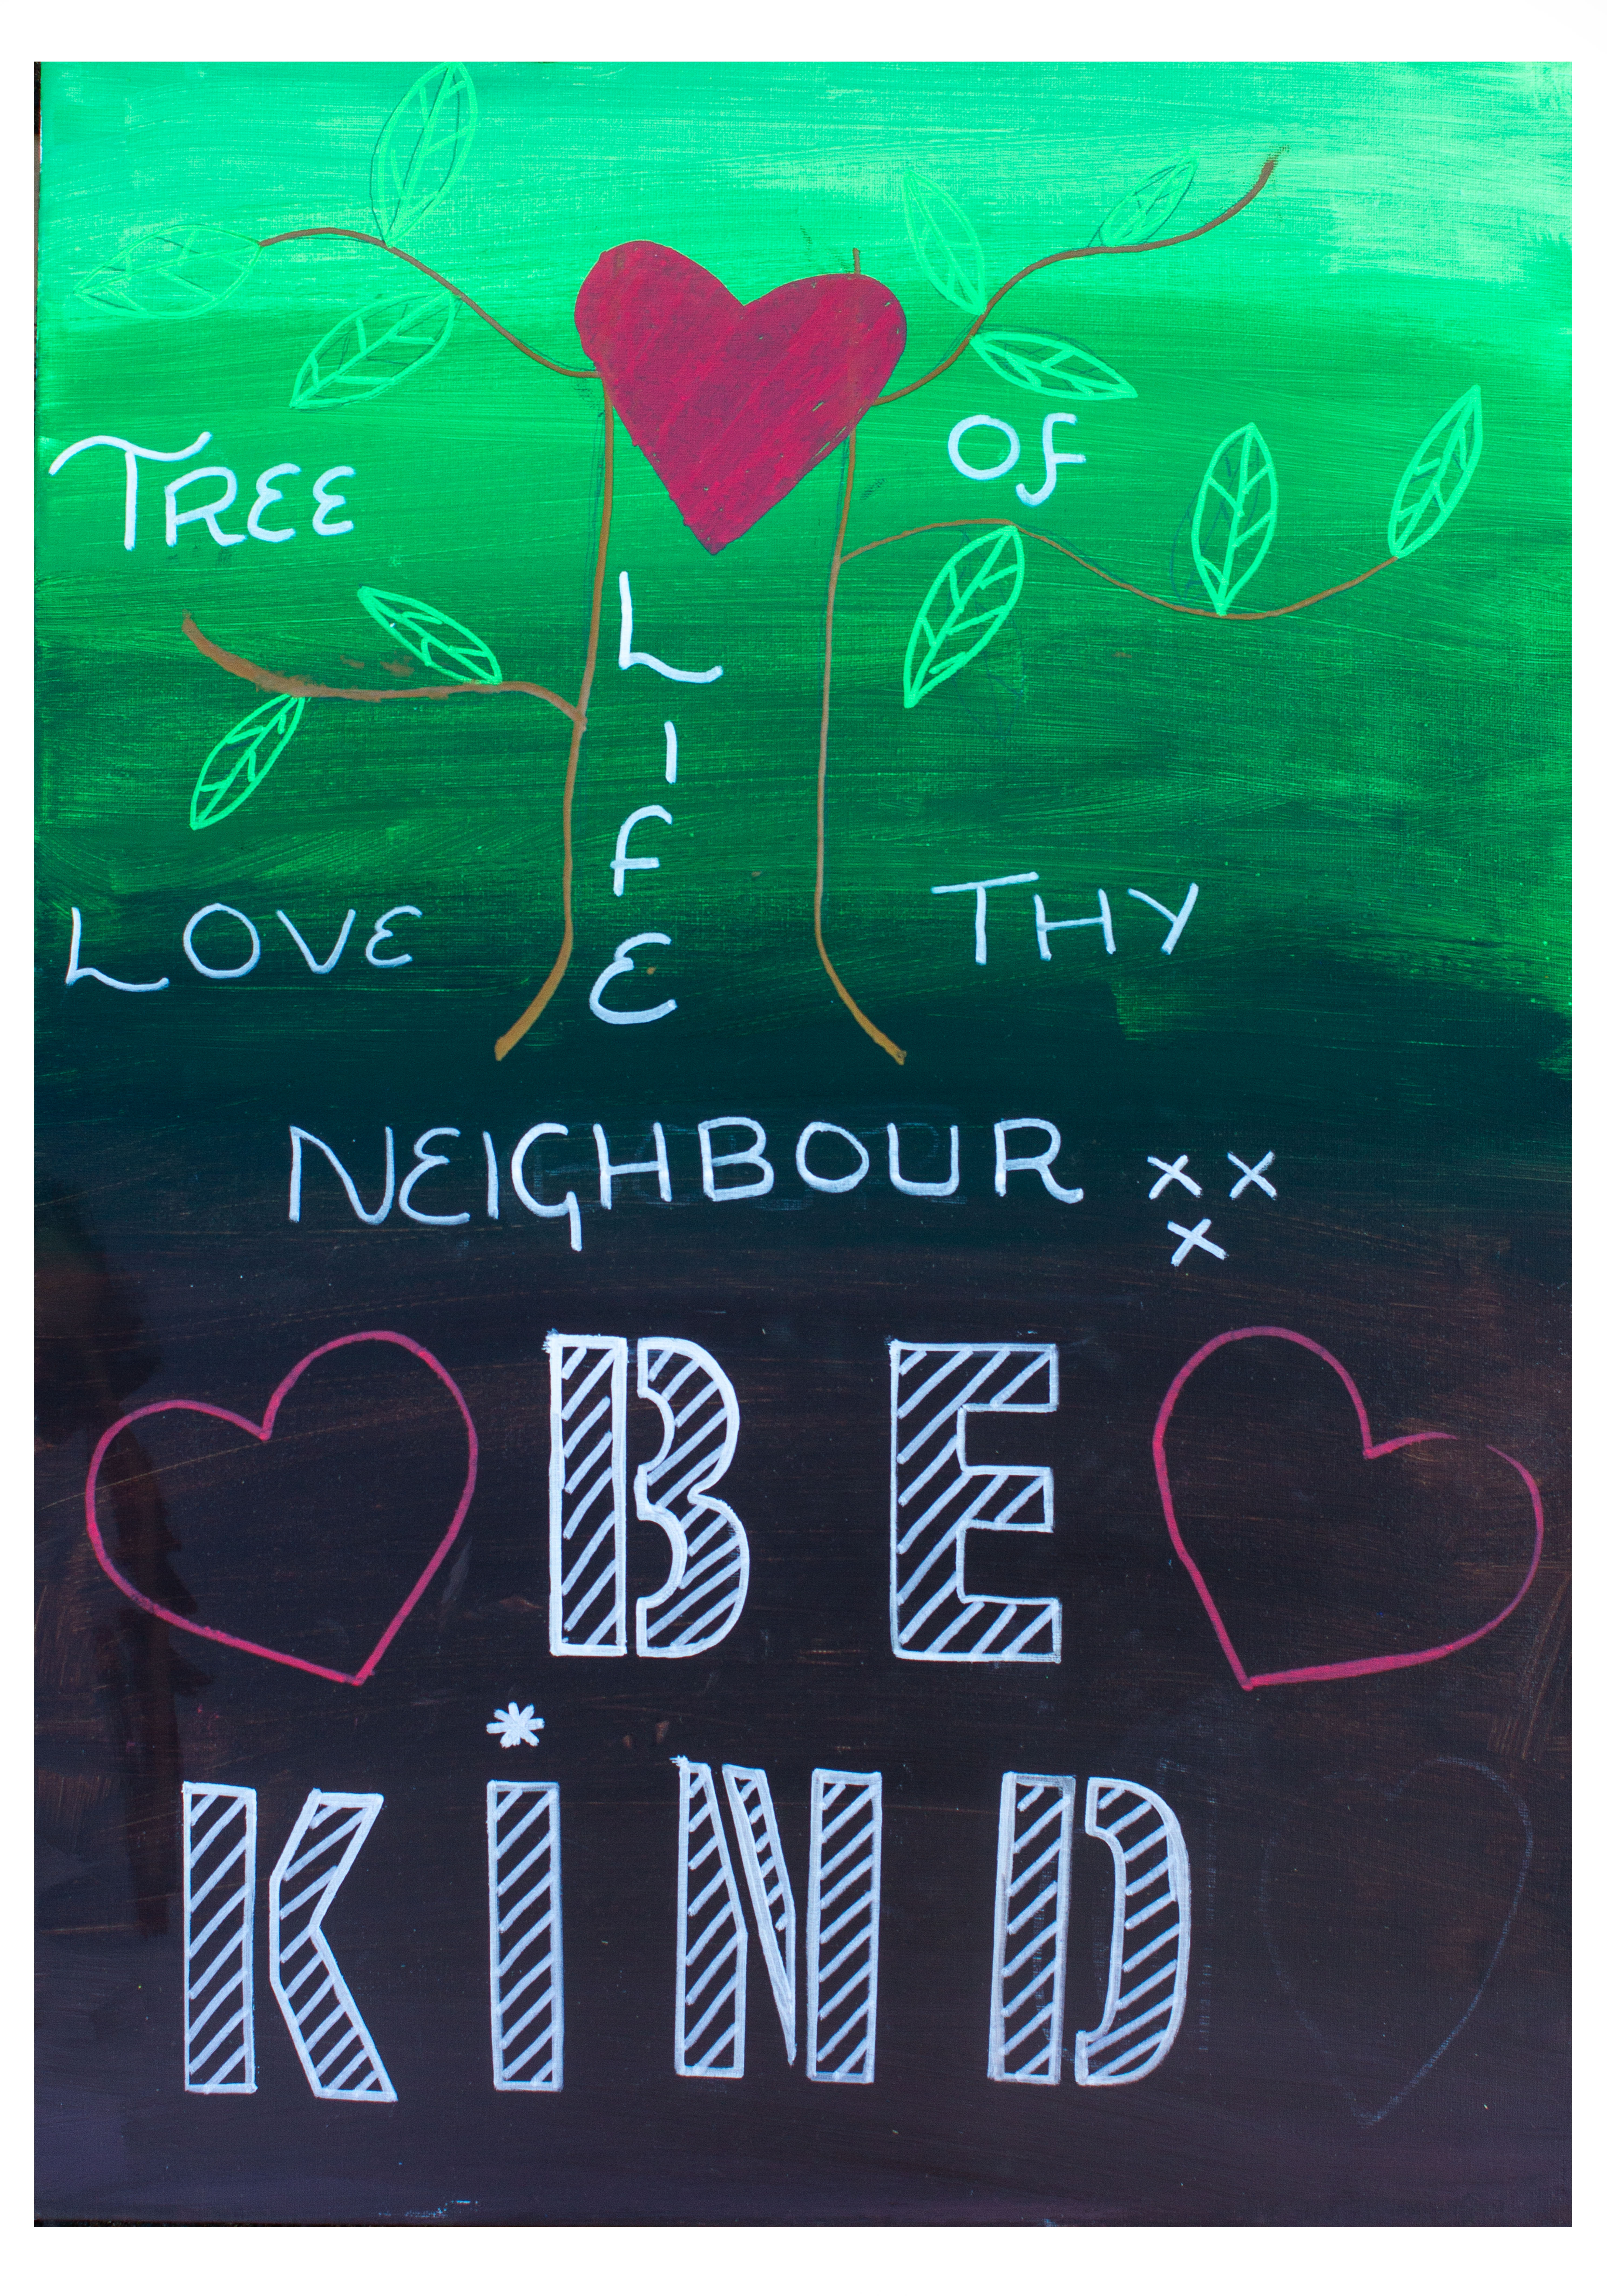 TREE OF
LIFE
LOVE THY
NEIGHBOUR xx
x
BE
KiND